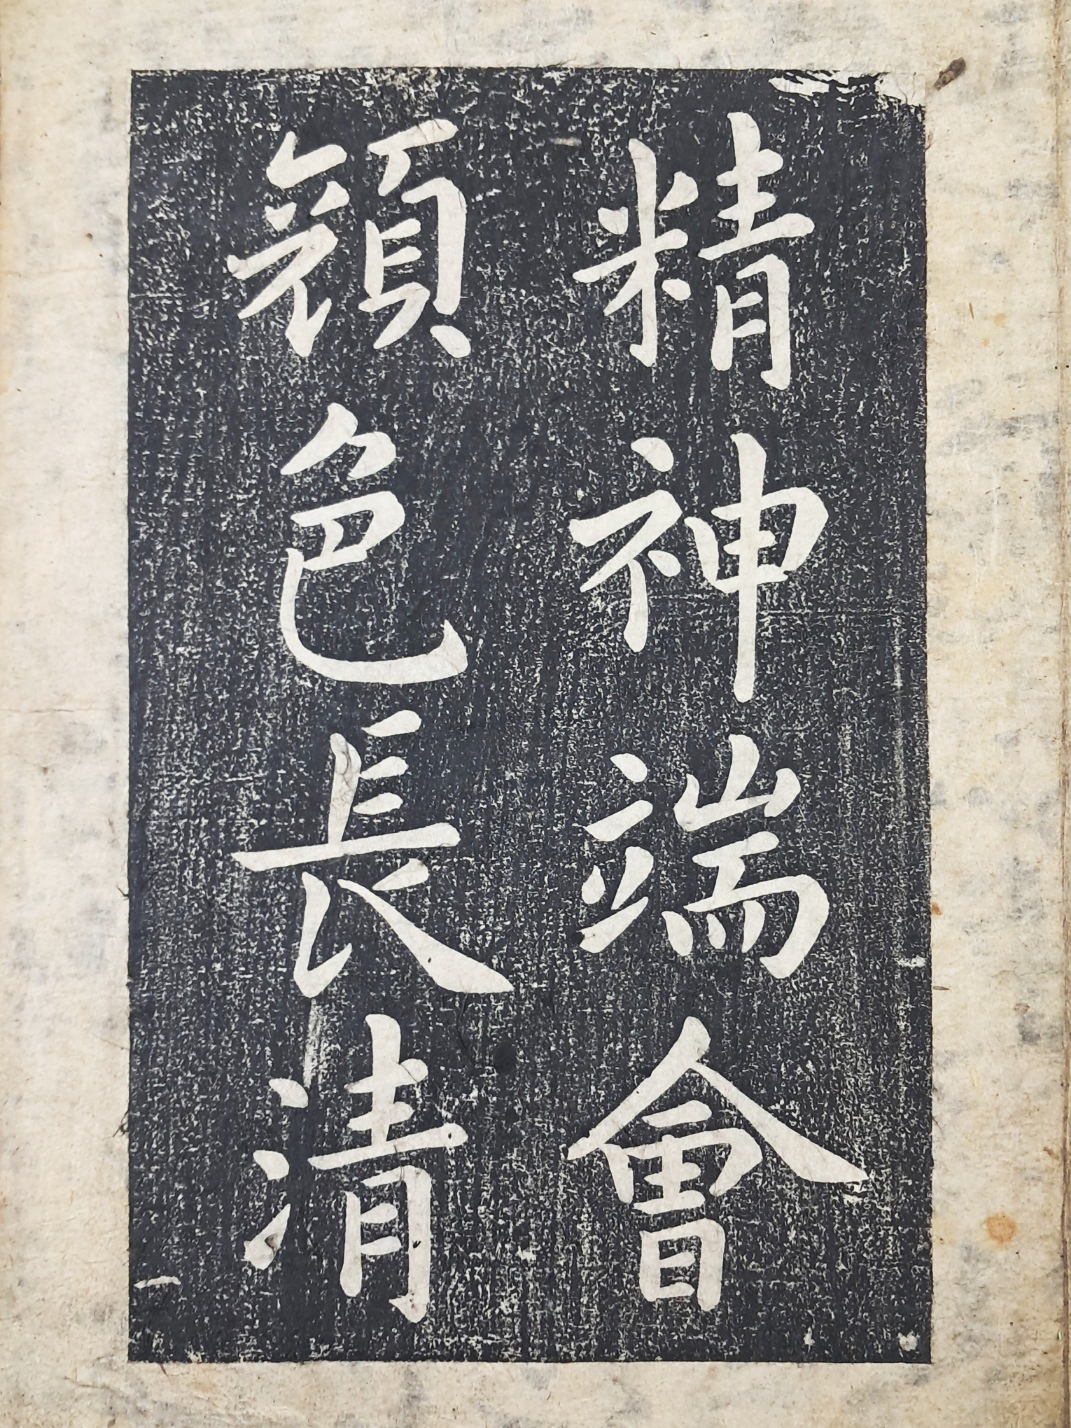 精神端會
顏色長清